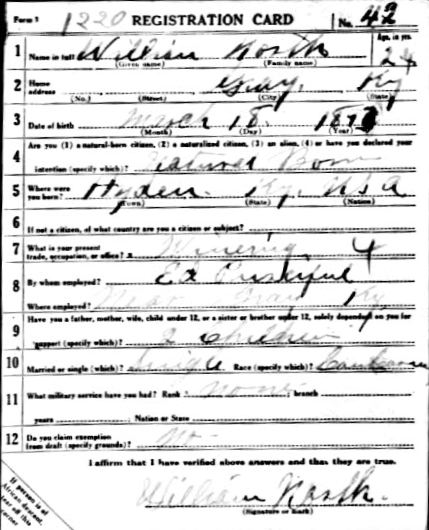 Form 1 1220 REGISTRATION CARD No. 42
1 Name in full William North Age, in yrs. 24
(Given name) (Family name)
2 Home address Gray, Ky
(No.) (Street) (City) (State)
3 Date of birth March 18 189
(Month) (Day) (Year)
4 Are you (1) a natural-born citizen, (2) a naturalized citizen, (3) an alien, (4) or have you declared your
intention (specify which)? Natural Born
5 Where were you born? Hyden. Ky. USA
(Town) (State) (Nation)
6 If not a citizen, of what country are you a citizen or subject?
7 What is your present trade, occupation, or office? 4
8 By whom employed? Ed
Where employed? Near Gray Ky
9 Have you a father, mother, wife, child under 12, or a sister or brother under 12, solely dependent on you for
support (specify which)? 2 Children
10 Married or single (which)? Single Race (specify which)? Caucasian
11 What military service have you had? Rank none ; branch
years ; Nation or State
12 Do you claim exemption from draft (specify grounds)? No
I affirm that I have verified above answers and that they are true.
William North.
(Signature or mark)
If person is of
African descent,
tear off this
corner